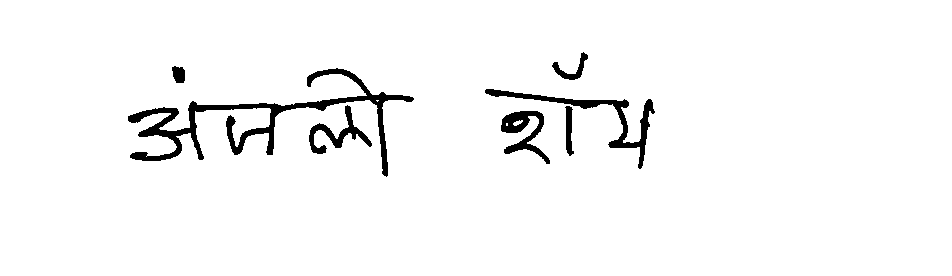 अंजली शॉप